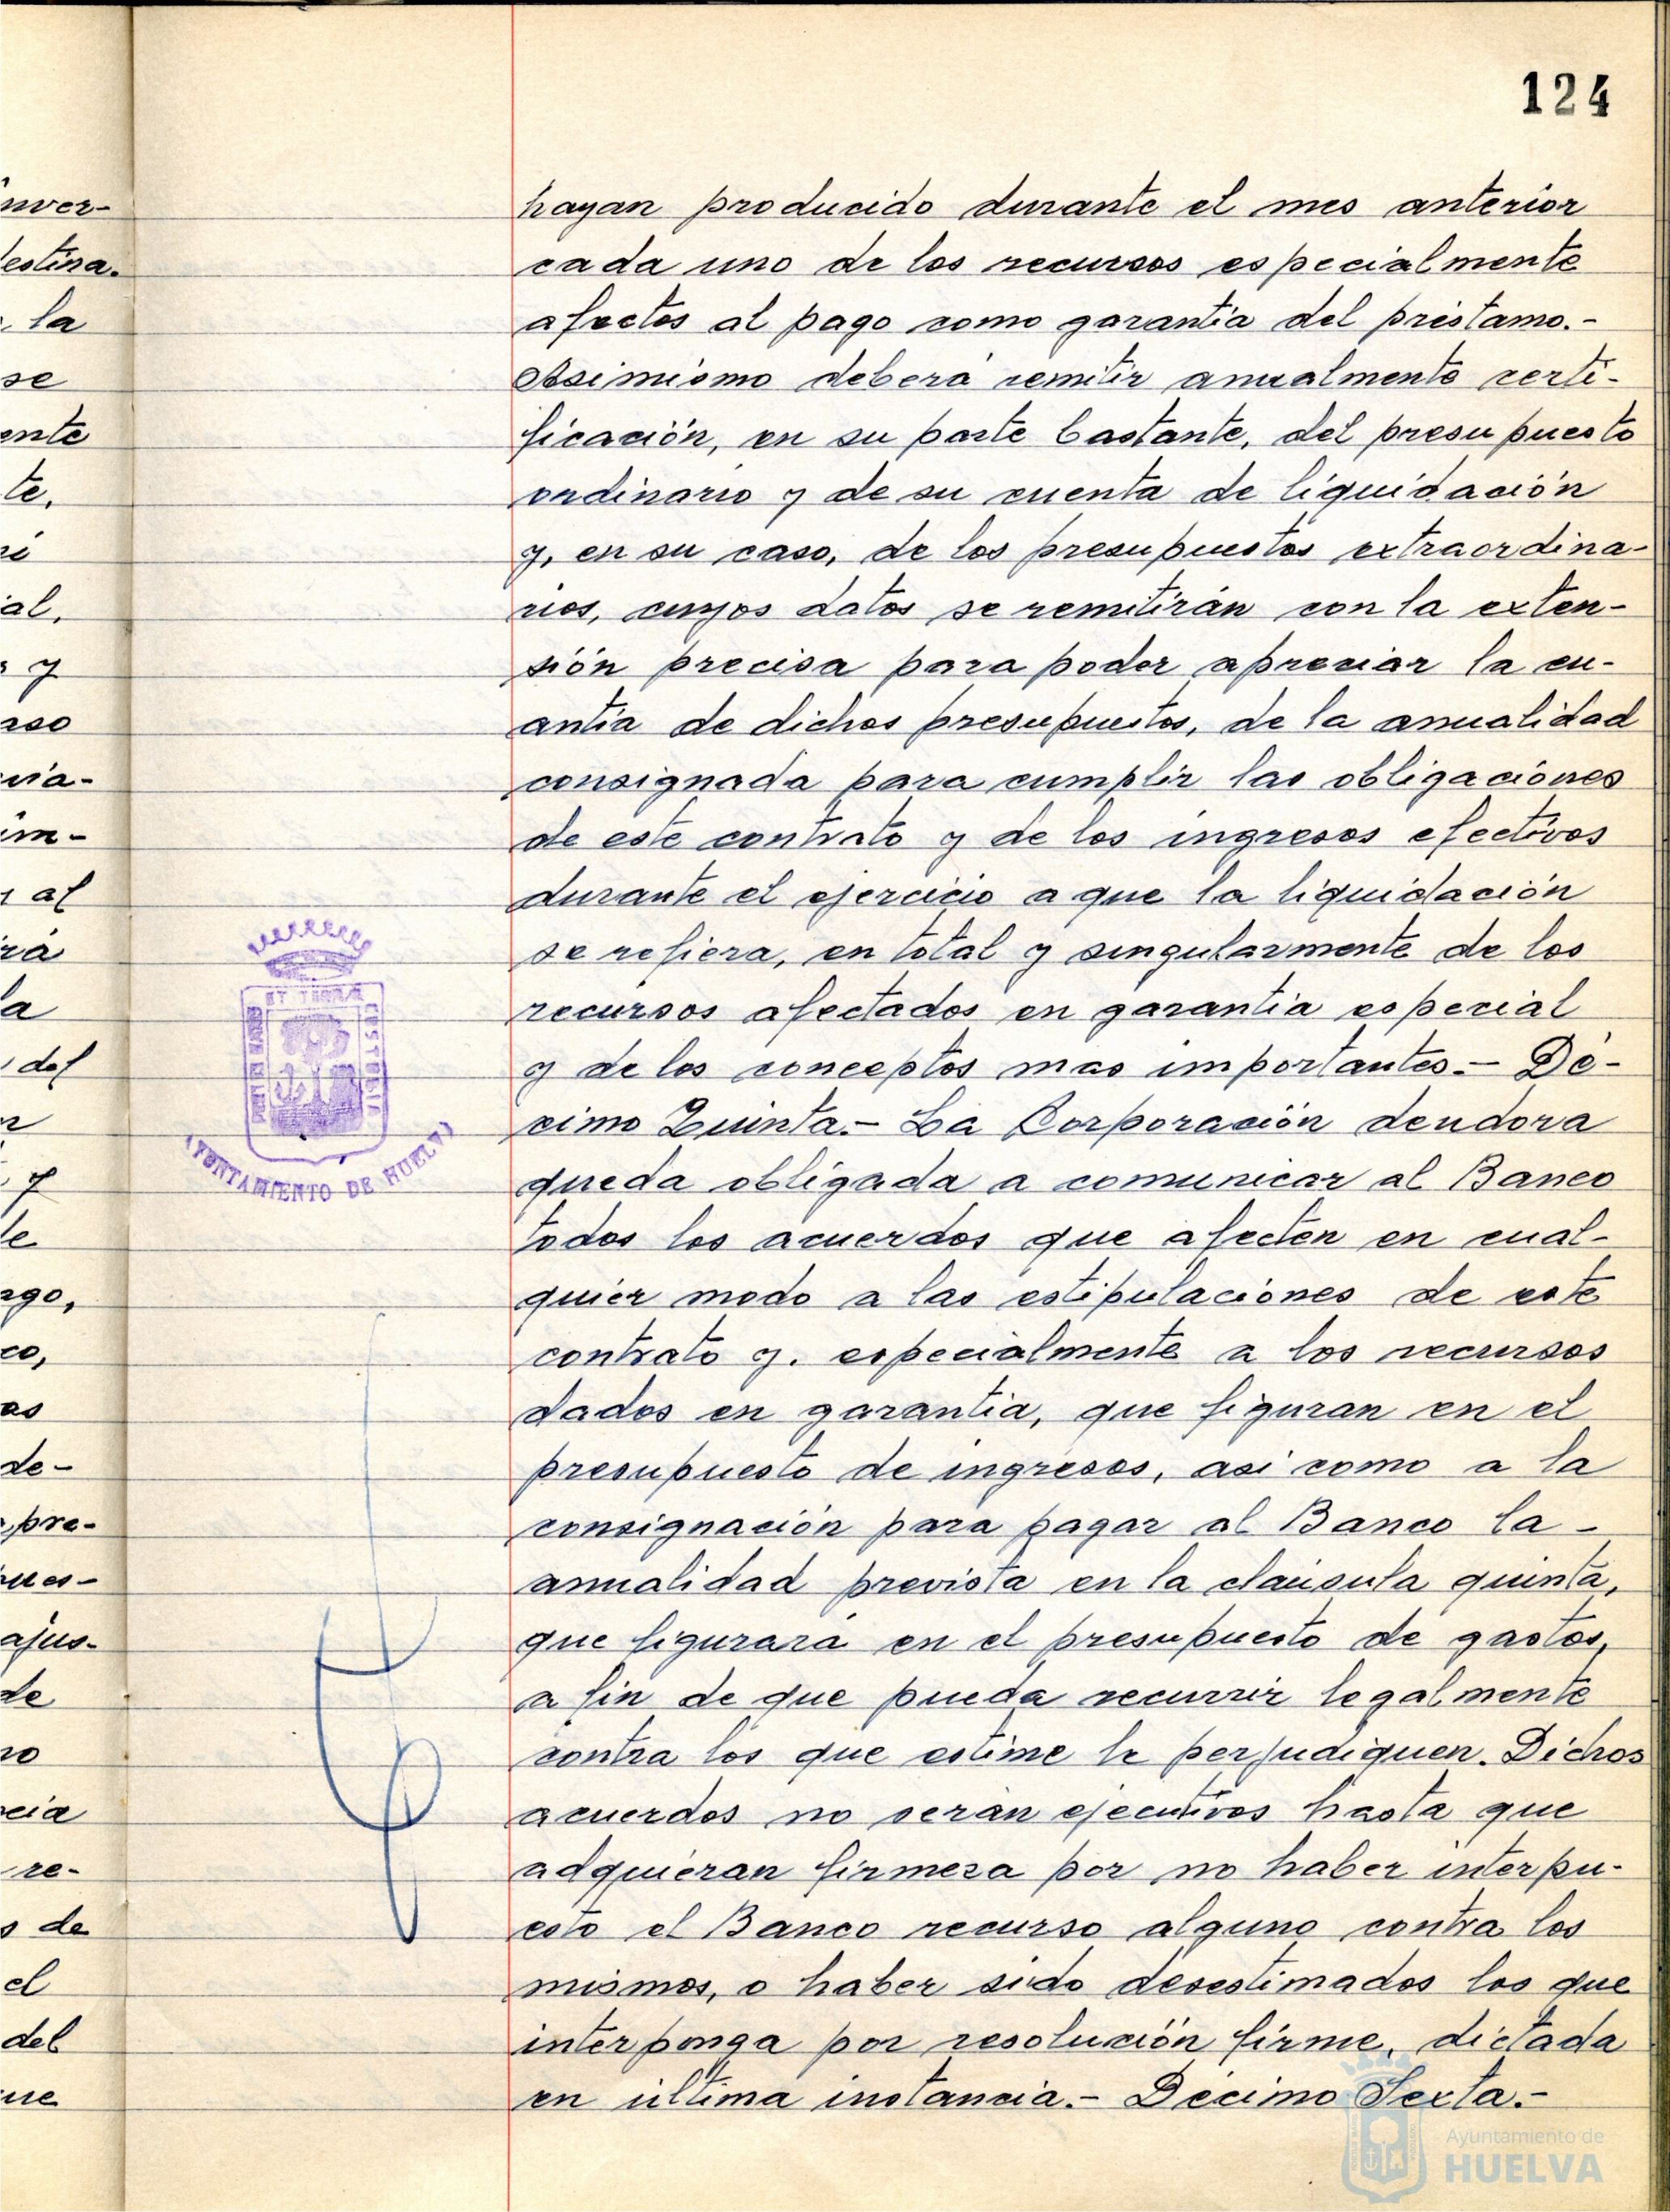 124
hayan producido durante el mes anterior
cada uno de los recursos especialmente
afectos al pago como garantía del préstamo.-
Asimismo deberá remitir anualmente certi-
ficación, en su parte bastante, del presupuesto
ordinario y de su cuenta de liquidación
y, en su caso, de los presupuestos extraordina-
rios, cuyos datos se remitirán con la exten-
sión precisa para poder apreciar la cu-
antia de dichos presupuestos, de la anualidad
consignada para cumplir las obligaciones
de este contrato y de los ingresos efectivos
durante el ejercicio a que la liquidación
se refiera, en total y singularmente de los
recursos afectados en garantia especial
y de los conceptos mas importantes.- Dé-
cimo Quinta.- La Corporación deudora
queda obligada a comunicar al Banco
todos los acuerdos que afecten en cual-
quier modo a las estipulaciones de este
contrato y. especialmente a los recursos
dados en garantia, que figuran en el
presupuesto de ingresos, asi como a la
consignación para pagar al Banco la -
anualidad prevista en la claúsula quinta,
que figurará en el presupuesto de gastos,
a fin de que pueda recurrir legalmente
contra los que estime le perjudiquen. Dichos
acuerdos no serán ejecutivos hasta que
adquieran firmeza por no haber interpu-
esto el Banco recurso alguno contra los
mismos, o haber sido desestimados los que
interponga por resolución firme, dictada
en última instancia.- Décimo Sexta.-
nver-
estina.
la
se
ente
te.
al.
y
ia-
im-
al
rá
la
del
y
le
ago,
co,
as
de-
pre-
ues-
ajus-
de
no
cia
re-
de
el
del
ue
PORTUS MARIS
ET TERRAE
CUSTODIA
AYUNTAMIENTO DE HUELVA
Ayuntamiento de
HUELVA